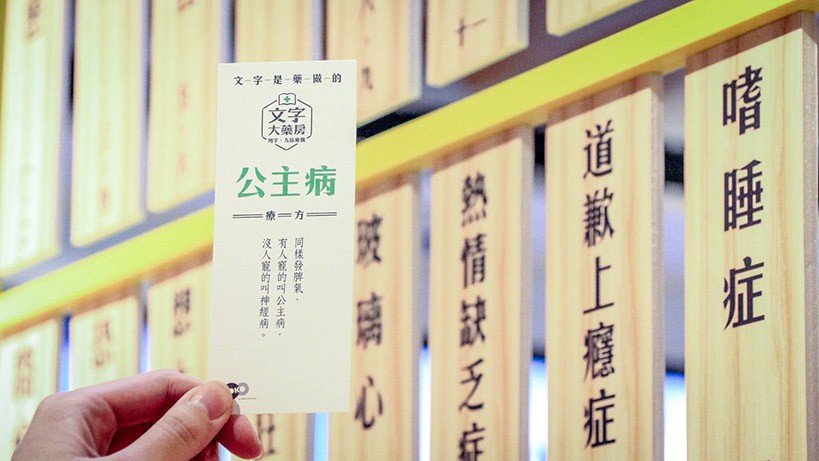 文字是藥做的
文字
大藥房
用字，為你療傷
公主病
療方
同樣發脾氣，
有人寵的叫公主病，
沒人寵的叫神經病。
玻璃心
熱情缺乏症
道歉上癮症
嗜睡症